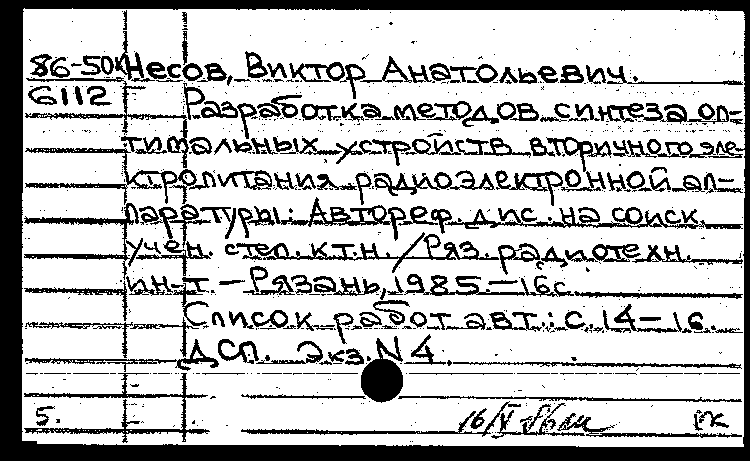 86-50к Несов, Виктор Анатольевич.
6112 Разработка методов синтеза оп-
тимальных устройств вторичного эле-
ктропитания радиоэлектронной ап-
паратуры: Автореф. дис. на соиск.
учен. степ. к.т.н. / Ряз. радиотехн.
ин-т. — Рязань, 1985. — 16с.
Список работ авт.: с. 14–16.
ДСП. Экз. N 4.
5. 16/V